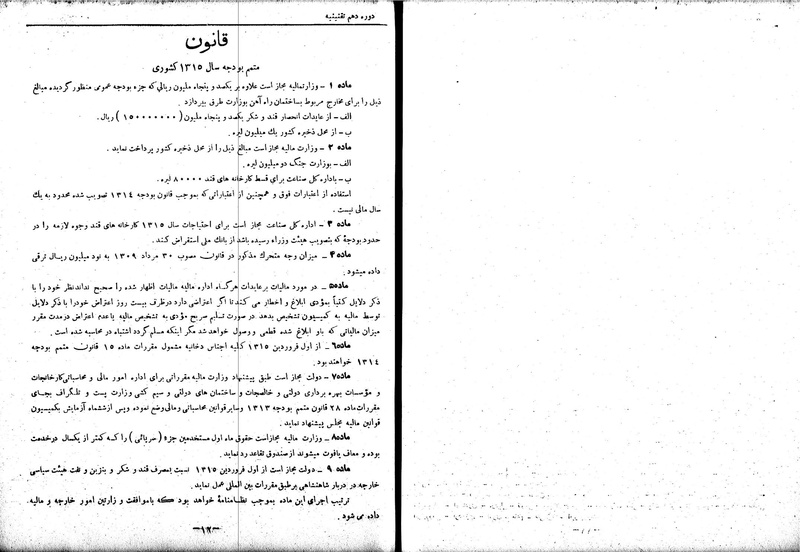 دوره دهم تقنینیه
قانون
متمم بودجه سال ۱۳۱۵ کشوری
ماده ۱ – وزارتمالیه مجاز است علاوه بر یکصد و پنجاه ملیون ریالی که جزء بودجه عمومی منظور گردیده مبالغ
ذیل را برای مخارج مربوط بساختمان راه آهن بوزارت طرق بپردازد .
الف – از عایدات انحصار قند و شکر یکصد و پنجاه ملیون ( ۱۵۰۰۰۰۰۰۰ ) ریال.
ب – از محل ذخیره کشور یك میلیون لیره .
ماده ۲ – وزارت مالیه مجاز است مبالغ ذیل را از محل ذخیره کشور پرداخت نماید .
الف – بوزارت جنگ دو میلیون لیره .
ب – باداره کل صناعت برای قسط کارخانه های قند ۸۰۰۰۰ لیره .
استفاده از اعتبارات فوق و همچنین از اعتباراتی که بموجب قانون بودجه ۱۳۱۴ تصویب شده محدود به یك
سال مالی نیست .
ماده ۳ – اداره کل صناعت مجاز است برای احتیاجات سال ۱۳۱۵ کارخانه های قند وجوه لازمه را در
حدود بودجهٔ که بتصویب هیئت وزراء رسیده باشد از بانك ملی استقراض کند .
ماده ۴ – میزان وجه متحرك مذکور در قانون مصوب ۳۰ مرداد ۱۳۰۹ به نود میلیون ریسال ترقی
داده میشود .
ماده ۵ – در مورد مالیات برعایدات هرگاه اداره مالیه مالیات اظهار شده را صحیح نداند نظر خود را با
ذکر دلایل کتباً بمؤدی ابلاغ و اخطار می کند تا اگر اعتراضی دارد درظرف بیست روز اعتراض خودرا با ذکر دلایل
توسط مالیه به کمیسیون تشخیص بدهد در صورت تسلیم صریح مؤدی به تشخیص مالیه یا عدم اعتراض درمدت مقرر
میزان مالیاتی که باو ابلاغ شده قطعی و وصول خواهد شد مگر اینکه مسلم گردد اشتباه در محاسبه شده است .
ماده ۶ – از اول فروردین ۱۳۱۵ کلیه اجناس دخانیه مشمول مقررات ماده ۱۵ قانون متمم بودجه
۱۳۱۴ خواهند بود .
ماده ۷ – دولت مجاز است طبق پیشنهاد وزارت مالیه مقرراتی برای اداره امور مالی و محاسباتی کارخانجات
و مؤسسات بهره برداری دولتی و خالصجات و ساختمان های دولتی و سیم کشی وزارت پست و تلگراف بجای
مقررات ماده ۲۸ قانون متمم بودجه ۱۳۱۳ و سایر قوانین محاسباتی و مالی وضع نموده و پس از ششماه آزمایش بکمیسیون
قوانین مالیه مجلس پیشنهاد نماید .
ماده ۸ – وزارت مالیه مجاز است حقوق ماه اول مستخدمین جزء ( سرپائی ) را که کمتر از یکسال درخدمت
بوده و معاف یافوت میشوند از صندوق تقاعد رد نماید .
ماده ۹ – دولت مجاز است از اول فروردین ۱۳۱۵ نسبت بمصرف قند و شکر و بنزین و نفت هیئت سیاسی
خارجه در دربار شاهنشاهی بر طبق مقررات بین المللی عمل نماید .
ترتیب اجرای این ماده بموجب نظامنامهٔ خواهد بود که باموافقت وزارتین امور خارجه و مالیه
داده می شود .